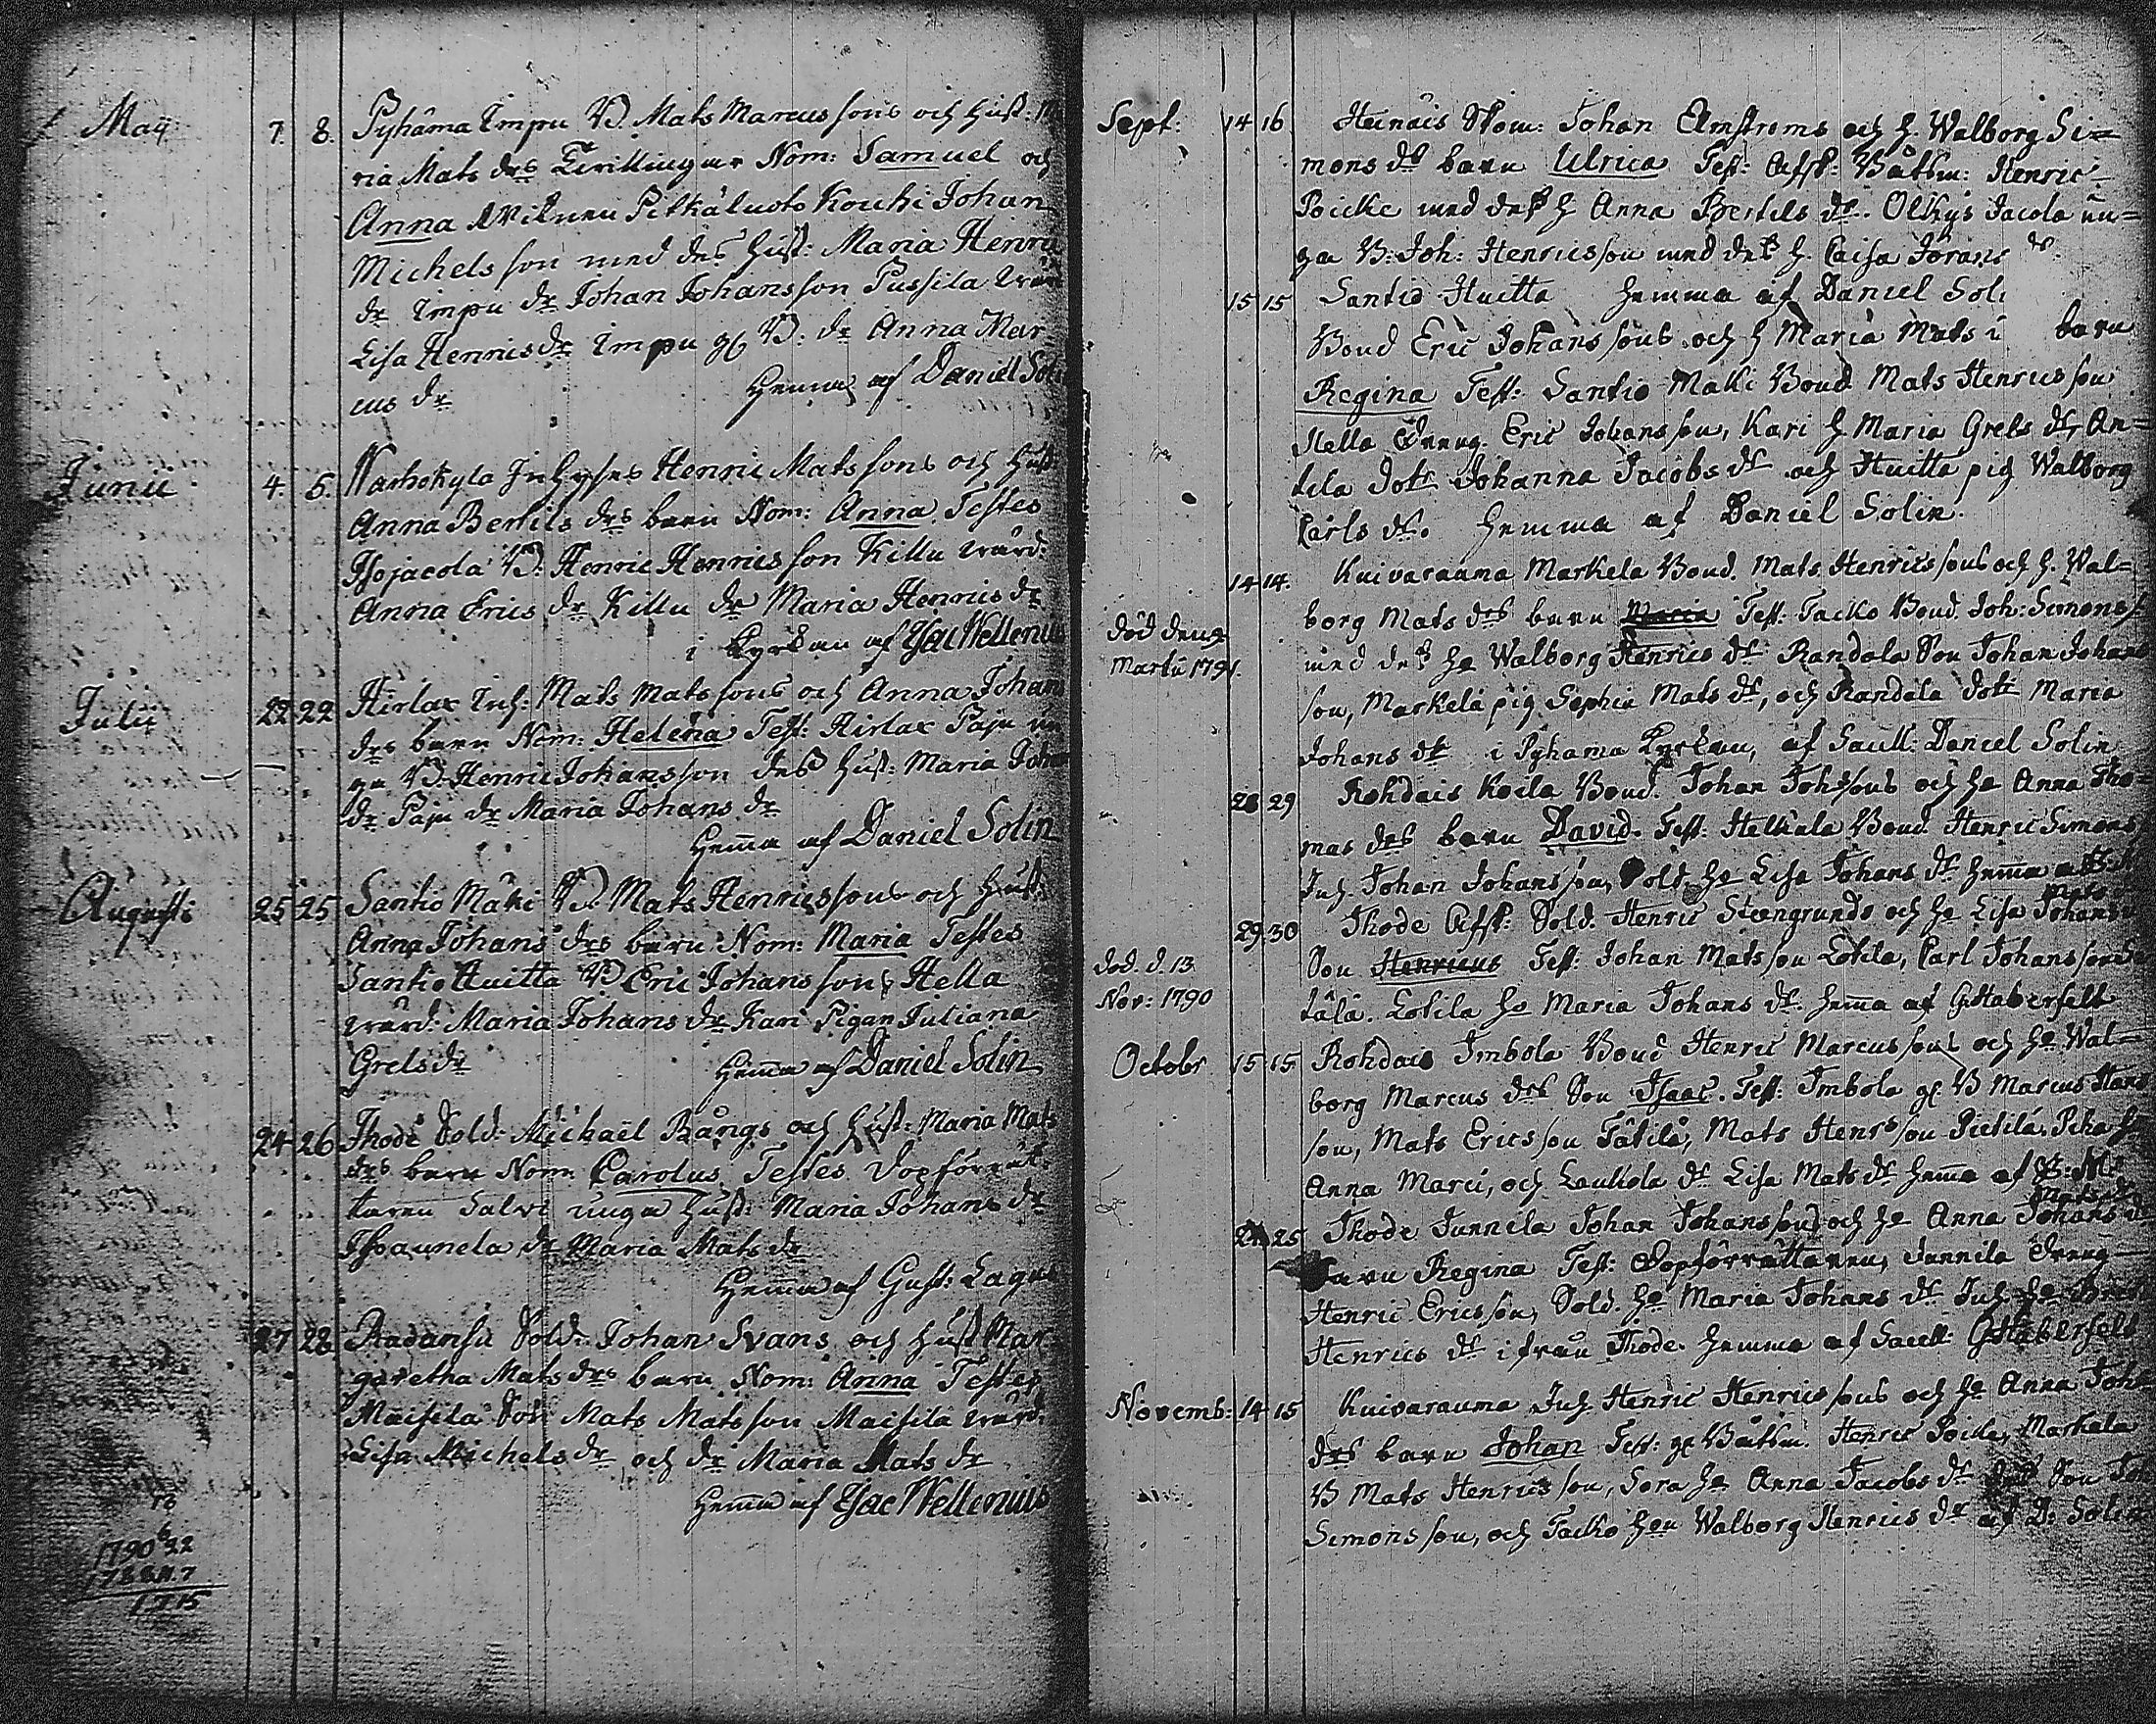 Maij 7. 8. Pyhäma Impu B. Mats Marcussons och Hust:
ria Mats drs Tvillingar Nom: Samuel och
Anna Vitnen Pitkäluoto Kouhi Johan
Michelsson med des Hust: Maria Henri
dr Impu dr Johan Johansson Pussila
Lisa Henricsdr Impu gl B: dr Anna Mar
cus dr Hemma af Daniel Soli
Junii 4. 5. Warhokylä Inhyses Henric Matssons och Hust:
Anna Bertils drs barn Nom: Anna. Testes
Isojacola B. Henric Henricsson Killu värd:
Anna Erics dr Killu dr Maria Henrics dr
i Kyrkan af Isac Wellenius
Julii 22 22 Hirlax Inh: Mats Matssons och Anna Johans
drs barn Nom: Helena Test: Hirlax Paju un
ga B. Henric Johansson des Hust: Maria Joha
dr Paju dr Maria Johans dr
Hema af Daniel Solin
Augusti 25 25 Santio Mäki B. Mats Henricssons och Hust:
Anna Johans drs barn Nom: Maria Testes
Santio Huitta B Eric Johansson, Hella
värd: Maria Johans dr Kari Pigan Juliana
Grelsdr Hema af Daniel Solin
24 26 Ihode Sold: Michaël Bångs och Hust: Maria Mats
drs barn Nom: Carolus. Testes Dopförrät
taren Salvi unga Hust: Maria Johans dr
Isoaunela dr Maria Mats dr
Hema af Gust: Lagus
27 28 Sold: Johan Svans och Hust Mar
garetha Mats drs barn Nom: Anna Testes
Maisila Son Mats Matsson Maisila värd:
Lisa Michels dr och dr Maria Mats dr
Hema af Isac Wellenius
13
1790
1715
Sept: 14 16 Heinäis Johan Amströms och h. Walborg Si=
mons drs barn Ulrica Test: Afsk: Båtsm: Henric
Poicke med dess h Anna Bertils dr. Olkys Jacola un=
ga B: Joh: Henricsson med dess h. Caisa Jörans dr.
15 15 Santio Huitta hemma af Daniel Soli
Bond Eric Johanssons och h Maria Mats barn
Regina Test: Santio Mäki Bond Mats Henricsson
Hella Dreng. Eric Johansson, Kari h Maria Grels dr, An=
tila dotr Johanna Jacobs dr och Huitta pig Walborg
Carls dr. hemma af Daniel Solin.
14 14. Kuivarauma Markela Bond. Mats Henricssons och h. Wal=
borg Mats drs barn Maria Test: Jacko Bond. Joh: Simons
död den 9 med dess ho Walborg Henrics dr Randala Son Johan Johans
Martii 1791. son, Markela pig Sophia Mats dr, och Randala dotr Maria
Johans dr i Pyhama Kyrkan, af Sacell: Daniel Solin
28 29 Rohdais Koila Bond. Johan Johssons och ho Anna Tho=
mas drs barn David. Test: Helkala Bond Henric Simons
Inh. Johan Johansson, Sold. ho Lisa Johans dr hema af
29. 30 Ihode Afsk: Sold. Henric Stengrunds och ho Lisa Johans
död. d. 13 Son Henricus Test: Johan Matsson Lotila, Carl Johansson
Nov: 1790 Lotila ho Maria Johans dr. hema af G Haberfelt
Octobr 15 15 Rohdais Imbola Bond Henric Marcussons och ho Wal=
borg Marcus drs Son Isaac. Test: Imbola gl B Marcus Hans
son, Mats Ericsson Tätilä, Mats Henrsson Pietilä,
Anna Marci, och Laukola dr Lisa Mats dr hema af
24 25 Ihode Junnila Johan Johanssons och ho Anna Johans Mats
barn Regina Test: Dopförrättaren, Junnila Dreng
Henric Ericsson, Sold. ho Maria Johans dr Inh ho
Henrics dr ifrån Ihode. hemma af Sacell: G Haberfelt
Novemb: 14 15 Kuivarauma Inh. Henric Henricssons och ho Anna Joh
drs barn Johan Test: gl Båtsm. Henric Poicke, Markala
B Mats Henricsson, Sora ho Anna Jacobs dr Son
Simonsson, och Jacko hon Walborg Henrics dr af D: Solin